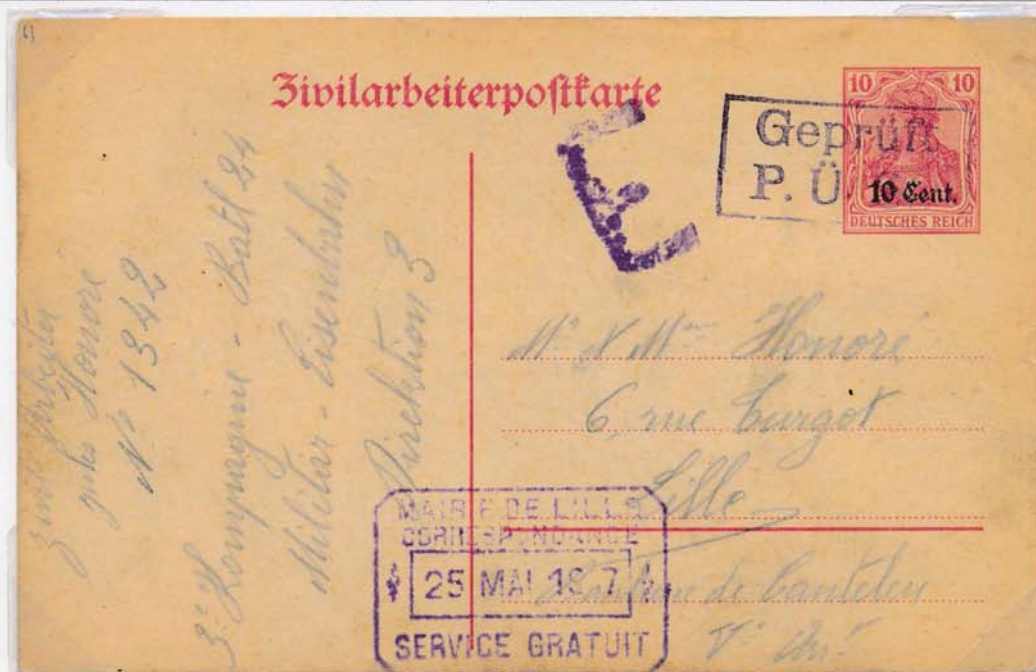 Zivilarbeiterpostkarte
10 10
10 Cent.
DEUTSCHES REICH
Geprüft
P. Ü.
E
Honoré
N° 1342
3e Kompagnie - Batl 24
Militär - Eisenbahn
Direktion 3
Mr & Mme Honoré
6, rue Turgot
Lille
Canteleu
MAIRIE DE LILLE
CORRESPONDANCE
25 MAI 1917
SERVICE GRATUIT